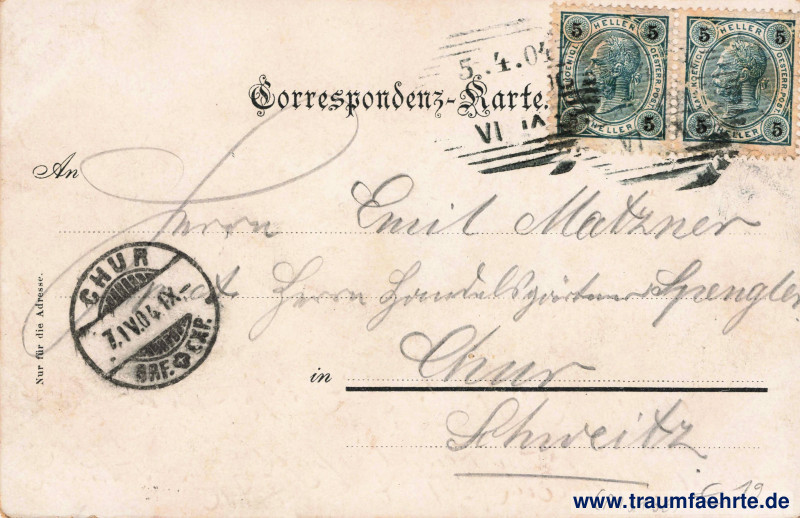 5 HELLER 5 5 HELLER 5
KAIS. KOENIGL. OESTERR. POST KAIS. KOENIGL. OESTERR. POST
5 HELLER 5 5 HELLER 5
5.4.04
Correspondenz-Karte.
An
Herrn Emil Matzner
Herrn Handelsgärtner Spengler
in Chur
Schweitz
Nur für die Adresse.
CHUR
7.IV.04.IX.-
BRF. EXP.
www.traumfaehrte.de